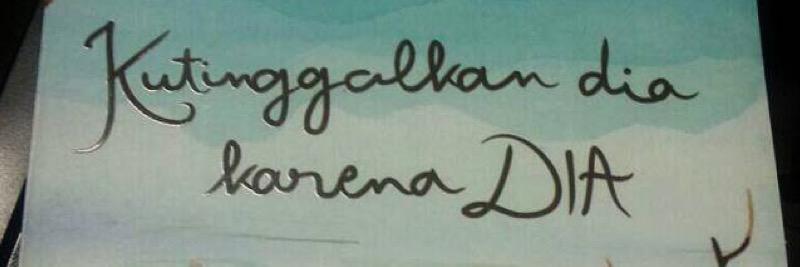 Kutinggalkan dia
karena DIA